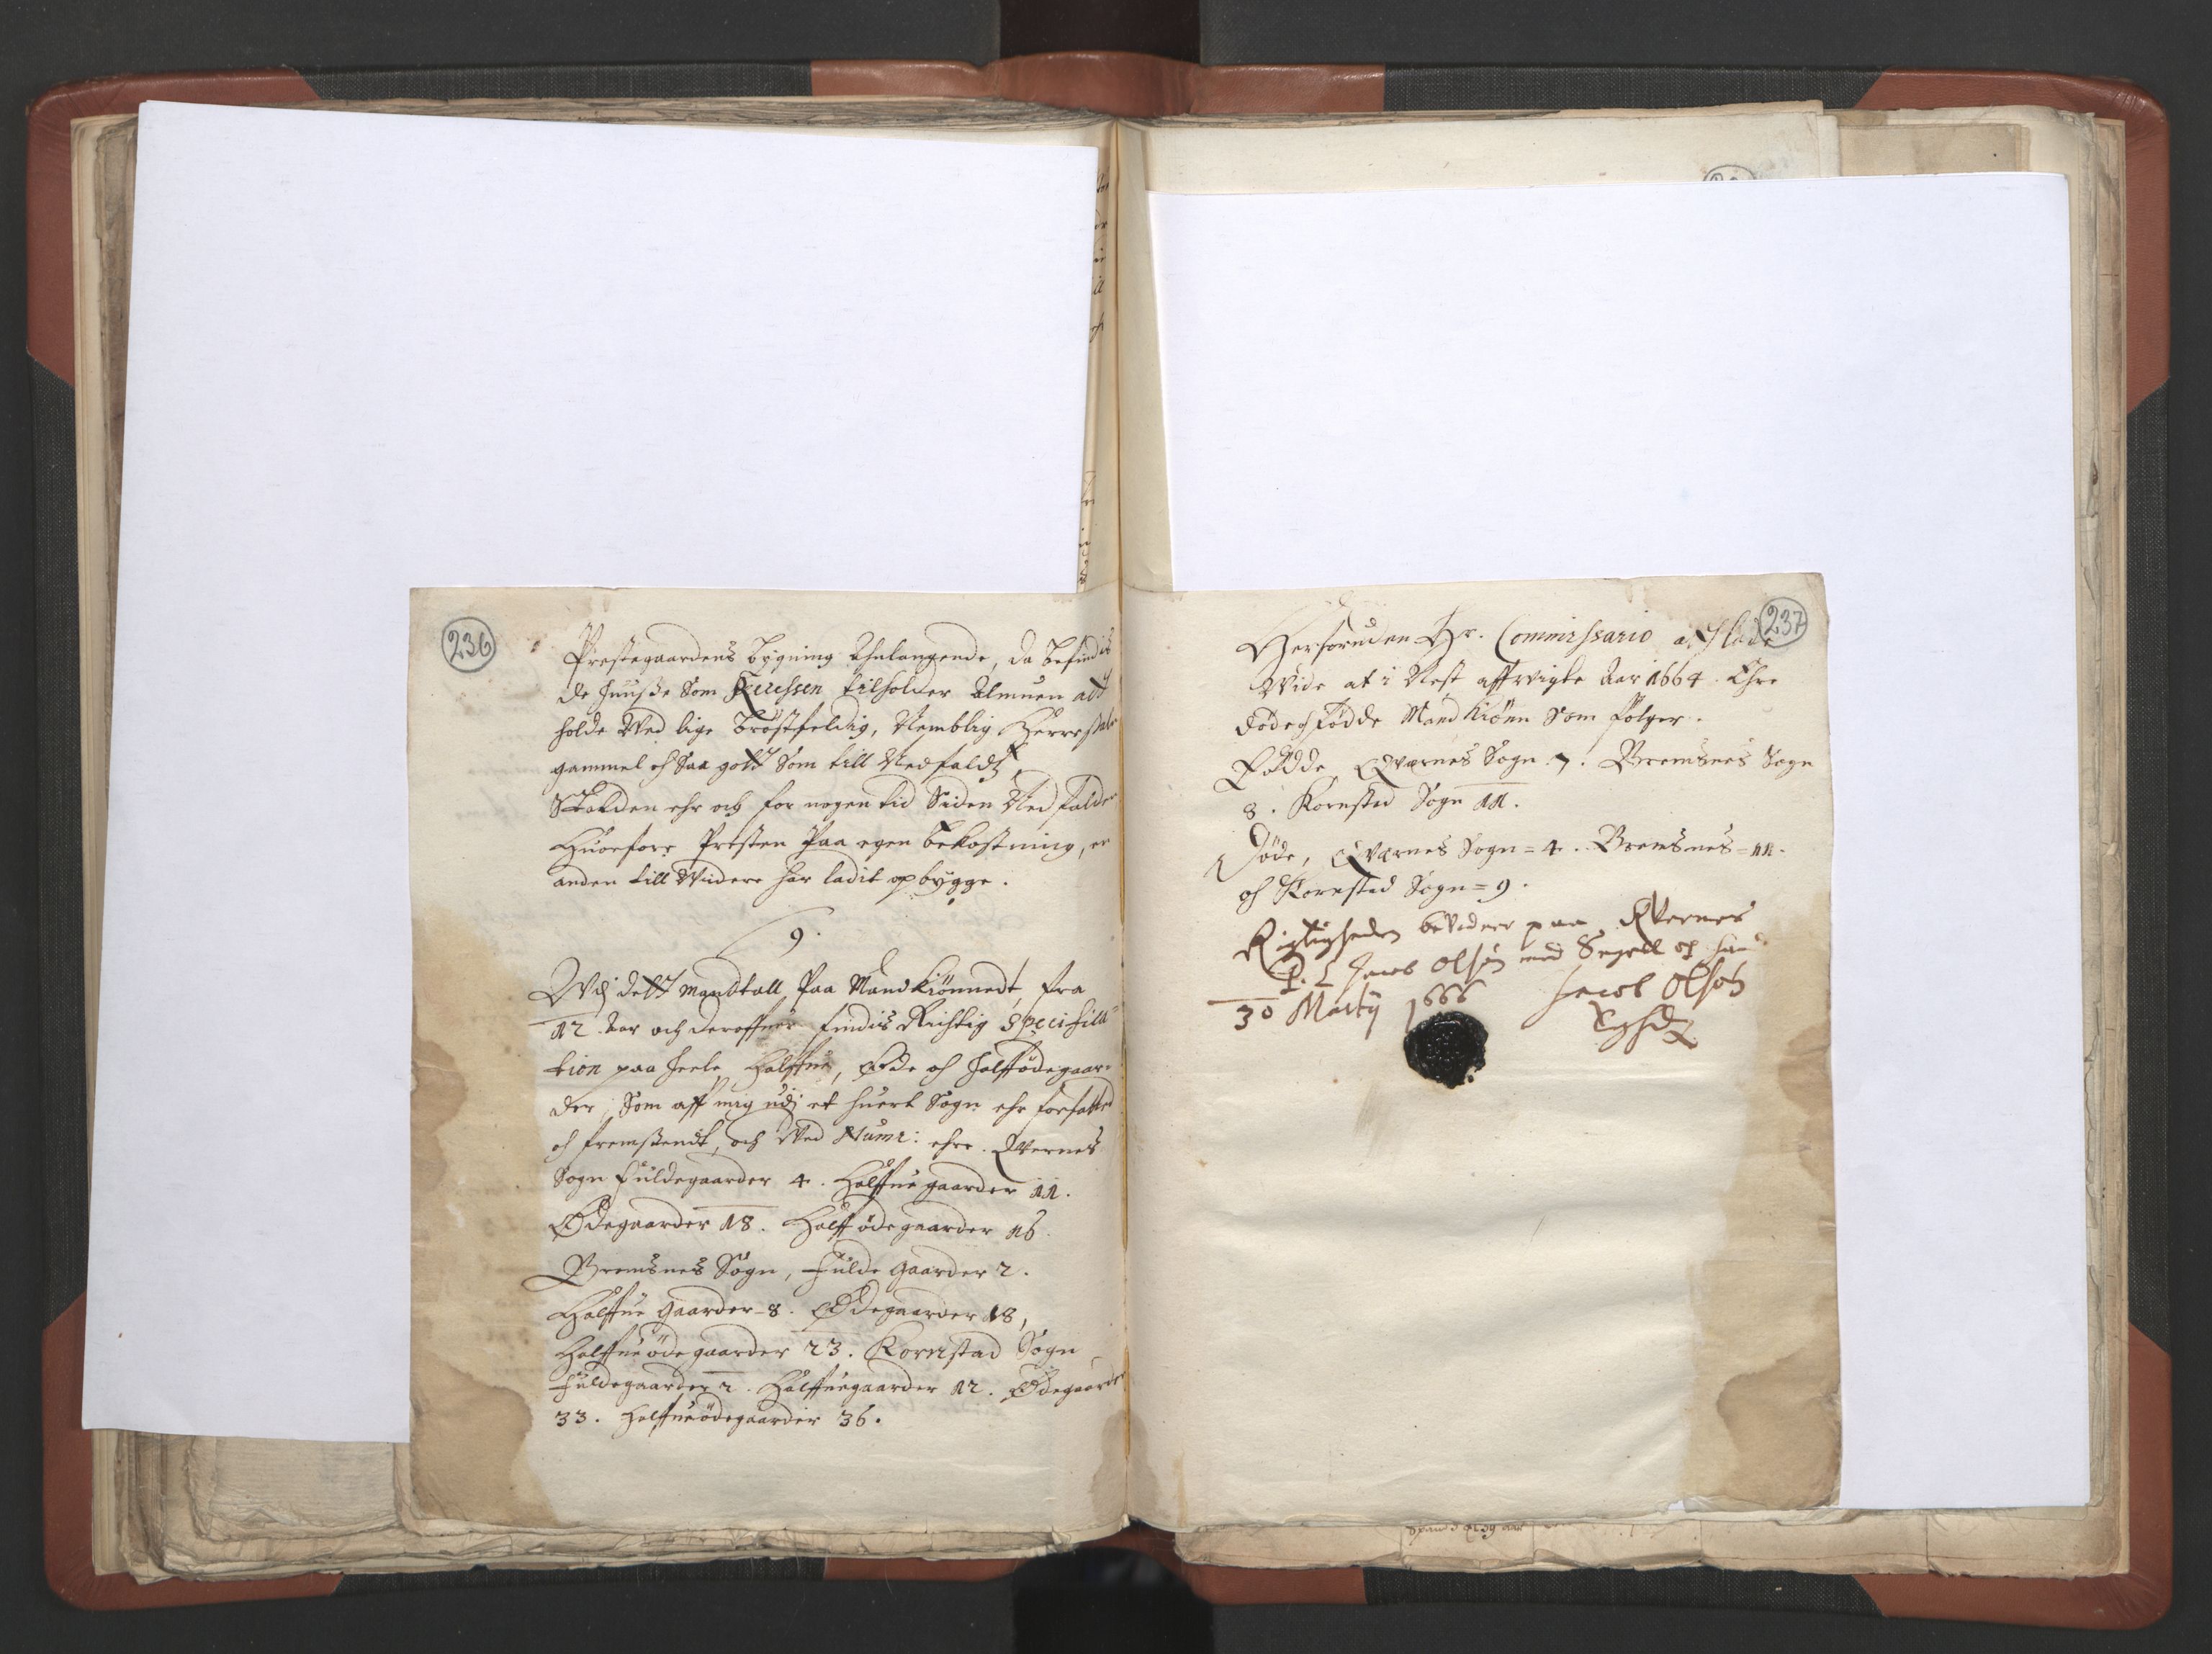 236
Prestegaardens bygning Ahnlangende, da befindis
de huusse som Recessen tilholder Almuen att
holde Ved lige brøstfeldig, Nemblig
gammel och saa gott som till Nedfaldz
ehr och for nogen tid siden Nedfalden
Huorforr Presten paa egen bekostning, en
anden till Videre har ladit opbygge.
9.
dett mandtall paa Mandkiønnedt, fra
12 aar och deroffuer findis Richtig specifica=
tion paa heele, halffue, øde och halffødegaar=
der, som aff mig udj et huert Sogn ehr forfatted
och fremskendt, och Ved Num: ehre. Qvernes
Sogn fuldegaarder 4. Halffuegaarder 11.
Ødegaarder 18. Halffødegaarder 16.
Bremsnes Sogn, fulde gaarder 2.
Halffue gaarder 8. Ødegaarder 18,
Halffueødegaarder 23. Kornstad Sogn
fuldegaarder 2. Halffuegaarder 12. Ødegaarder
33. halffueødegaarder 36.
237
Herforuden Hr. Commissario
Vide at i Nest affvigte Aar 1664. Ehre
døde och fødde Mandkiønn som følger.
Fødde, Qvernes Sogn 7. Bremsnes Sogn
8. Kornstad Sogn 11.
Døde, Qvernes Sogn = 4. Bremsnes = 11.
och Kornstad Sogn = 9.
Rigtigheden bevidner paa Qvernes
Jacob Olsøn med Segell och
30 Martij 1666 Jacob Olsøn